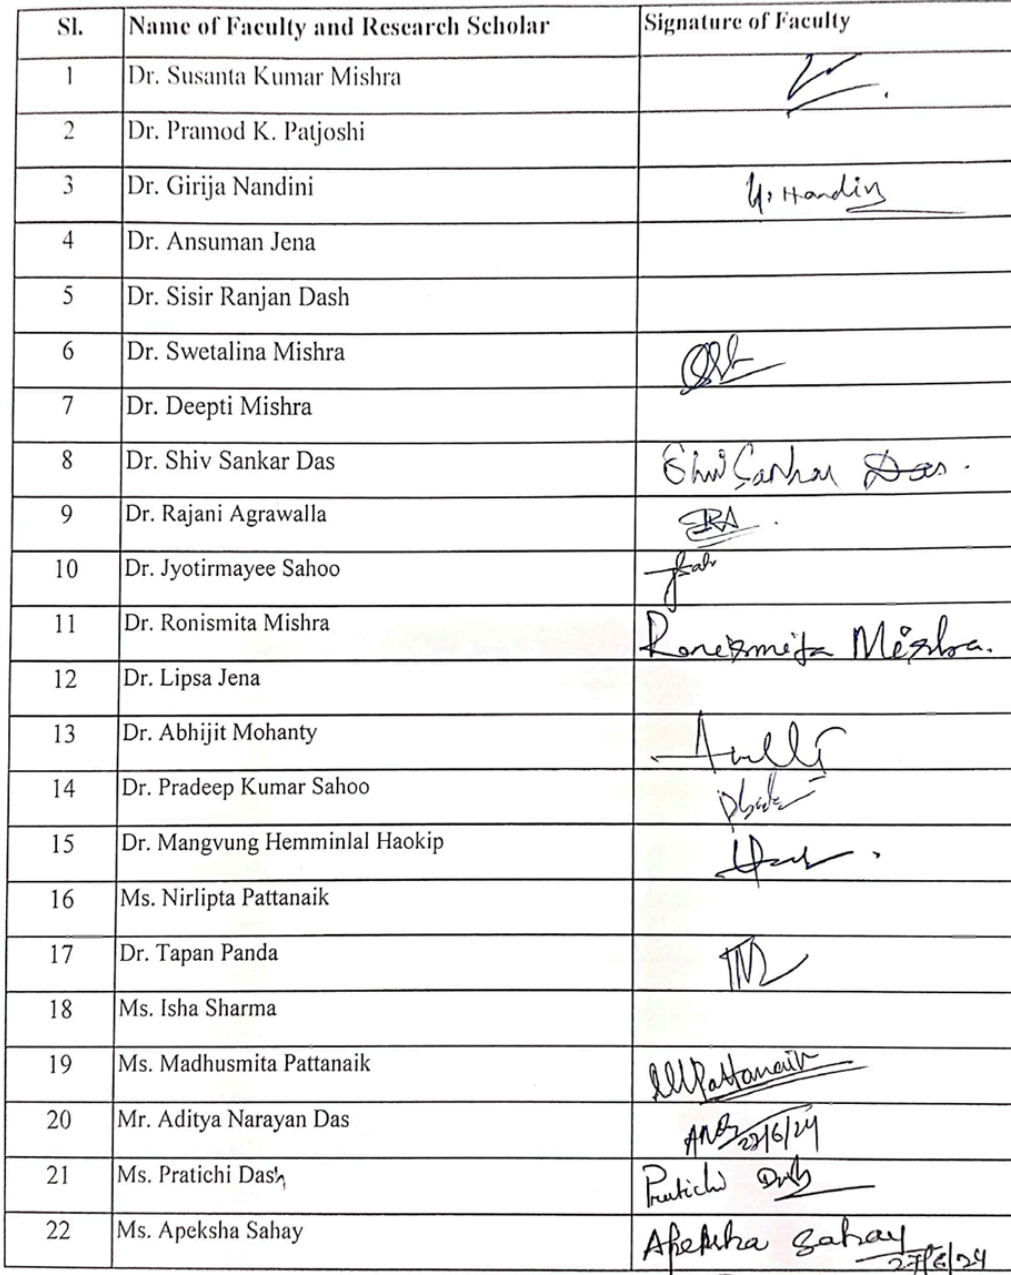 Sl. Name of Faculty and Research Scholar Signature of Faculty
1 Dr. Susanta Kumar Mishra
2 Dr. Pramod K. Patjoshi
3 Dr. Girija Nandini
4 Dr. Ansuman Jena
5 Dr. Sisir Ranjan Dash
6 Dr. Swetalina Mishra
7 Dr. Deepti Mishra
8 Dr. Shiv Sankar Das Shiv Sankar Das.
9 Dr. Rajani Agrawalla
10 Dr. Jyotirmayee Sahoo
11 Dr. Ronismita Mishra Ronismita Mishra.
12 Dr. Lipsa Jena
13 Dr. Abhijit Mohanty
14 Dr. Pradeep Kumar Sahoo
15 Dr. Mangvung Hemminlal Haokip
16 Ms. Nirlipta Pattanaik
17 Dr. Tapan Panda
18 Ms. Isha Sharma
19 Ms. Madhusmita Pattanaik MPattanaik
20 Mr. Aditya Narayan Das
21 Ms. Pratichi Dash Pratichi Dash
22 Ms. Apeksha Sahay Apeksha Sahay
27/6/24